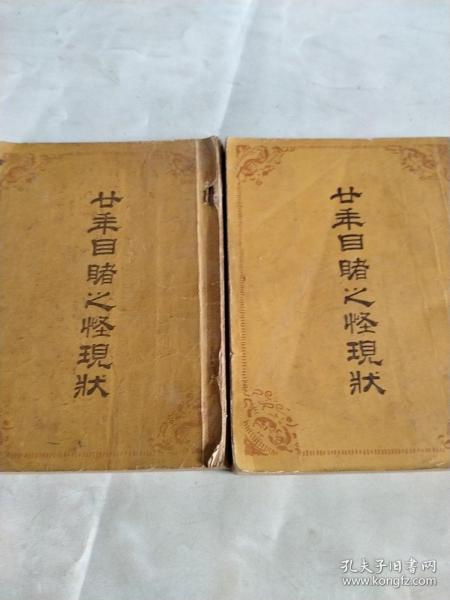 廿年目睹之怪現狀
廿年目睹之怪現狀
孔夫子旧书网
www.kongfz.com